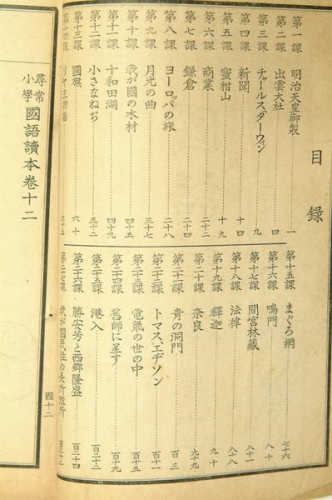 目録
第一課 明治天皇御製 一
第二課 出雲大社 四
第三課 チャールスダーウィン 九
第四課 新聞 十四
第五課 蜜柑山 十九
第六課 商業 二十二
第七課 鎌倉
第八課 ヨーロッパの旅 二十八
第九課 月光の曲 三十七
第十課 我が國の木材 四十四
第十一課 十和田湖 四十九
第十二課 小さなねぢ 五十二
第十三課 國旗 六十
第十四課 リヤ王物語
第十五課 まぐろ網 七十六
第十六課 鳴門 八十
第十七課 間宮林藏
第十八課 法律
第十九課 釋迦 九十
第二十課 奈良
第二十一課 青の洞門 百三
第二十二課 トマスエヂソン 百十一
第二十三課 電氣の世の中
第二十四課 舊師に呈す 百十九
第二十五課 港入 百二十二
第二十六課 勝安芳と西郷隆盛 百二十四
第二十七課 我が國民性の長所短所
國十二
尋常小學國語讀本卷十二